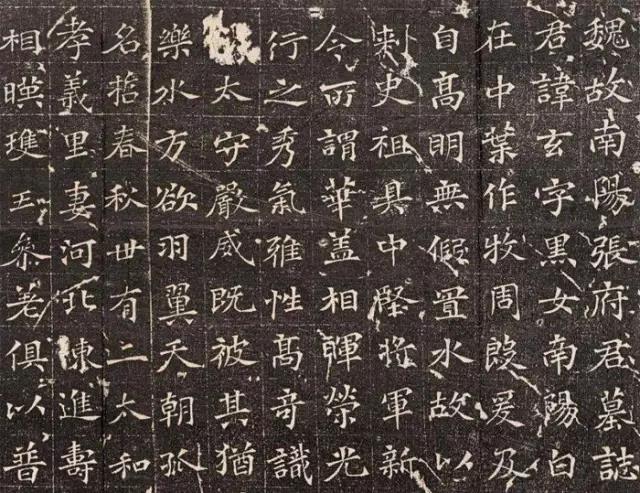 魏故南陽張府君墓誌
君諱玄字黑女南陽白
在中葉作牧周殷爰及
自高明無假置水故以
刾史祖具中堅將軍新
今所謂華盖相暉榮光
行之秀氣雅性高奇識
太守嚴威既被其猶
樂水方欲羽翼天朝抓
名哲春秋卅有二太和
孝義里妻河北陳進壽
相暎瓊玉叅差俱以普